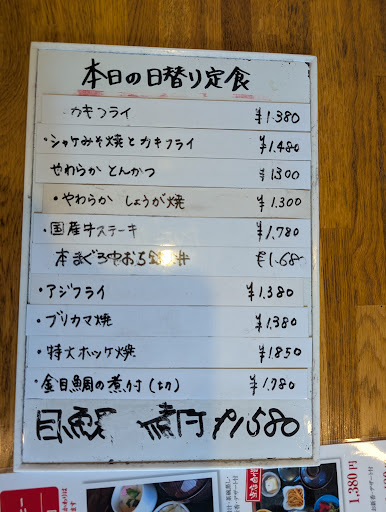 本日の日替り定食
カキフライ ¥1.380
・シャケみそ焼とカキフライ ¥1.480
やわらか とんかつ ¥1300
・やわらか しょうが焼 ¥1.300
・国産牛ステーキ ¥1.780
本まぐろ中おち
・アジフライ ¥1.380
・ブリカマ焼 ¥1.380
・特大ホッケ焼 ¥1.850
金目鯛の煮付(切) ¥1.780
目 煮付 ¥1580
1,380円